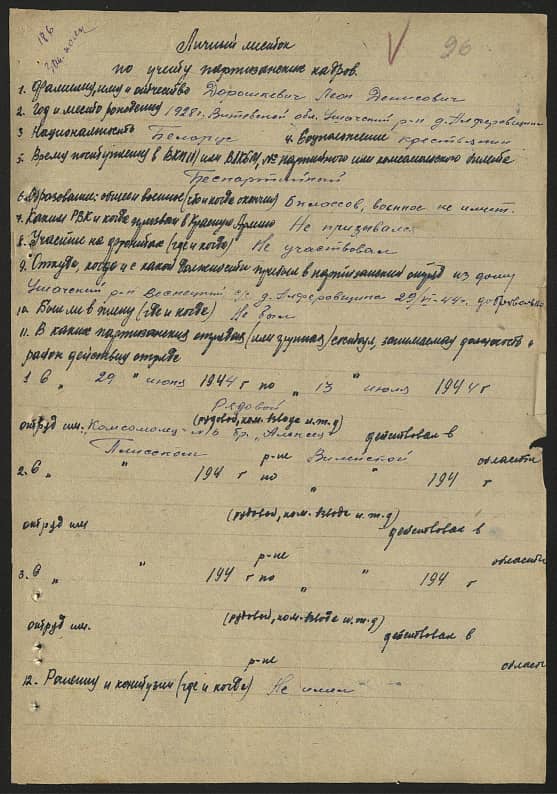 186
96
Личный листок
по учету партизанских кадров.
1. Фамилия, имя и отчество Дорошкевич Леон Денисович
2. Год и место рождения 1928 г. Витебской обл. Ушачский р-н д. Алферовщина
3 Национальность Беларус 4. Соцположение крестьянин
5. Время поступления в ВКП(б) или ВЛКСМ, № партийного или комсомольского билета
Беспартийный
6. Образование: общее и военное (где и когда окончил) 5 классов, военное не имеет.
7. Каким РВК и когда призван в Красную Армию Не призывался
8. Участие на фронтах (где и когда) Не участвовал
9. Откуда, когда и с какой должности прибыл в партизанский отряд из дому
Ушачский р-н с/с д. Алферовщина 29/VI-44 г. добровольно
10. Был ли в плену (где и когда) Не был
11. В каких партизанских отрядах (или группах) состоял, занимаемая должность и
район действия отряда
1 С " 29 " июня 1944 г по " 13 " июля 1944 г
Рядовой
отряд им. Комсомолец бр. (рядовой, ком. взвода и.т.д) действовал в
Плисском р-не Вилейской области
2. С " " 194 г по " " 194 г
отряд им (рядовой, ком. взвода и.т.д) действовал в
р-не области
3. С " " 194 г по " " 194 г
отряд им. (рядовой, ком. взвода и.т.д) действовал в
р-не област
12. Ранения и контузии (где и когда) Не имел